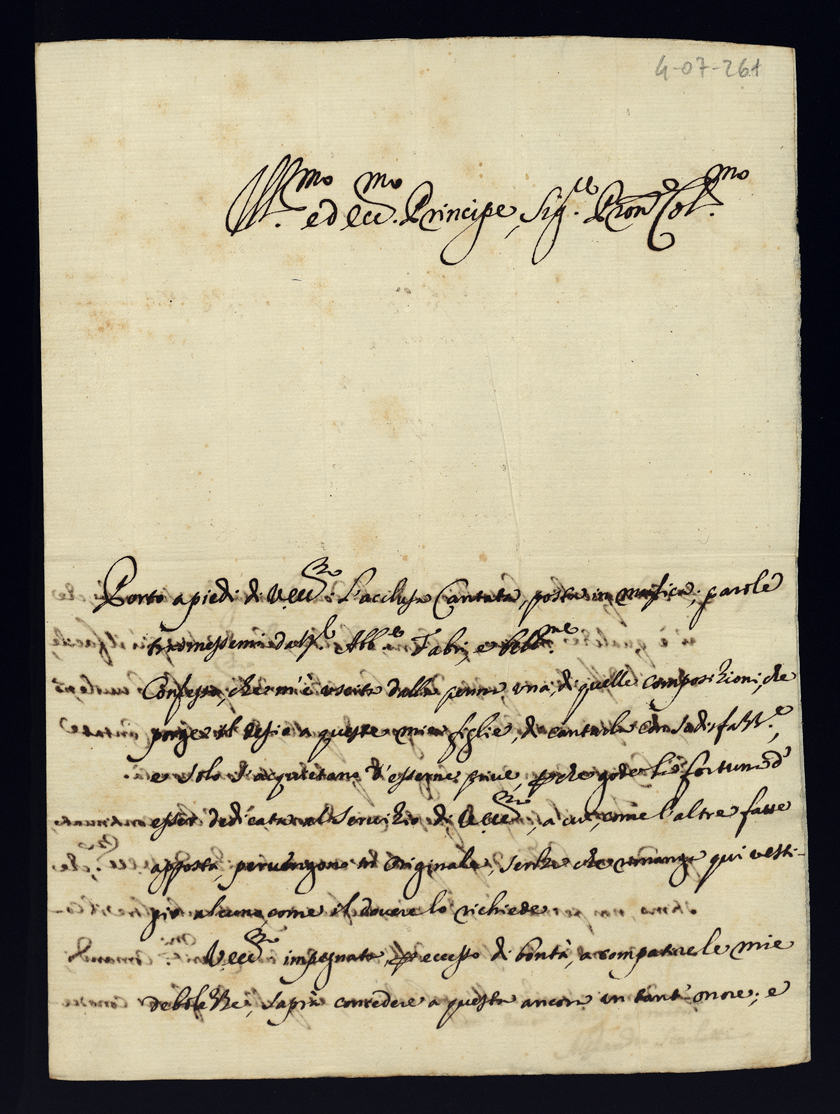 4-07-261
Ill.mo ed Ecc.mo Principe, Sig.re Pron Col.mo
Porto a piedi di V. Ecc.za l'acclusa Cantata, posta in musica; parole
trasmessemi dal Sig.r Abb.e Fabri, e
Confesso, che m'è uscita dalla penna, una, di quelle composizioni, che
porge il desio a queste mie figlie, di cantarla con sodisfatt.e,
e solo s'acquietano d'esserne prive, perche gode la fortuna d'
esser dedicata al Servizio di V. Ecc.za, a cui, come l'altre fatte
apposta, pervengono in Originale, senza che rimanga qui vesti-
gio alcuno, come il dovere lo richiede.
V. Ecc.za impegnata, per eccesso di bontà, a compatire le mie
debolezze, saprà concedere a questa ancora un tant'onore; e